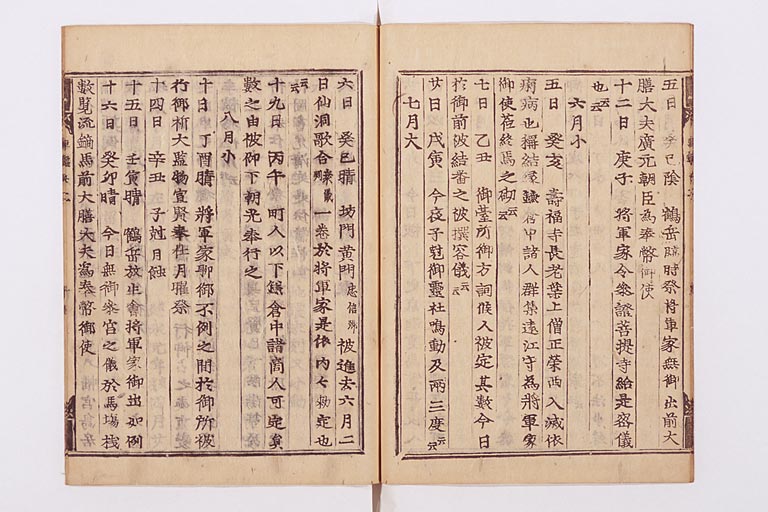 五日 癸巳陰 鶴岳臨時祭將軍家無御出前大
膳大夫廣元朝臣為奉幣御使
十二日 庚子 將軍家令參證菩提寺給是密儀
也云云
六月小
五日 癸亥 壽福寺長老葉上僧正榮西入滅依
痢病也稱結縁鎌倉中諸人群集遠江守為將軍家
御使莅終焉之砌云云
七日 乙丑 御臺所御方詞候人被定其數今日
於御前被結番之被撰容儀云云
廿日 戊寅 今夜子尅御靈社鳴動及兩三度云云
七月大
六日 癸巳晴 坊門黄門忠信卿 被進去六月二
日仙洞歌合衆議判 一卷於將軍家是依内々勅定也
云云
十九日 丙午 町人以下鎌倉中諸商人可定員
數之由被仰下朝光奉行之
八月小
十日 丁酉晴 將軍家聊御不例之間於御所被
行御祈大監物宣賢奉仕月曜祭
十四日 辛丑 子尅月蝕
十五日 壬寅晴 鶴岳放生會將軍家御出如例
十六日 癸卯晴 今日無御參宮之儀於馬塲棧
敷覽流鏑馬前大膳大夫為奉幣御使